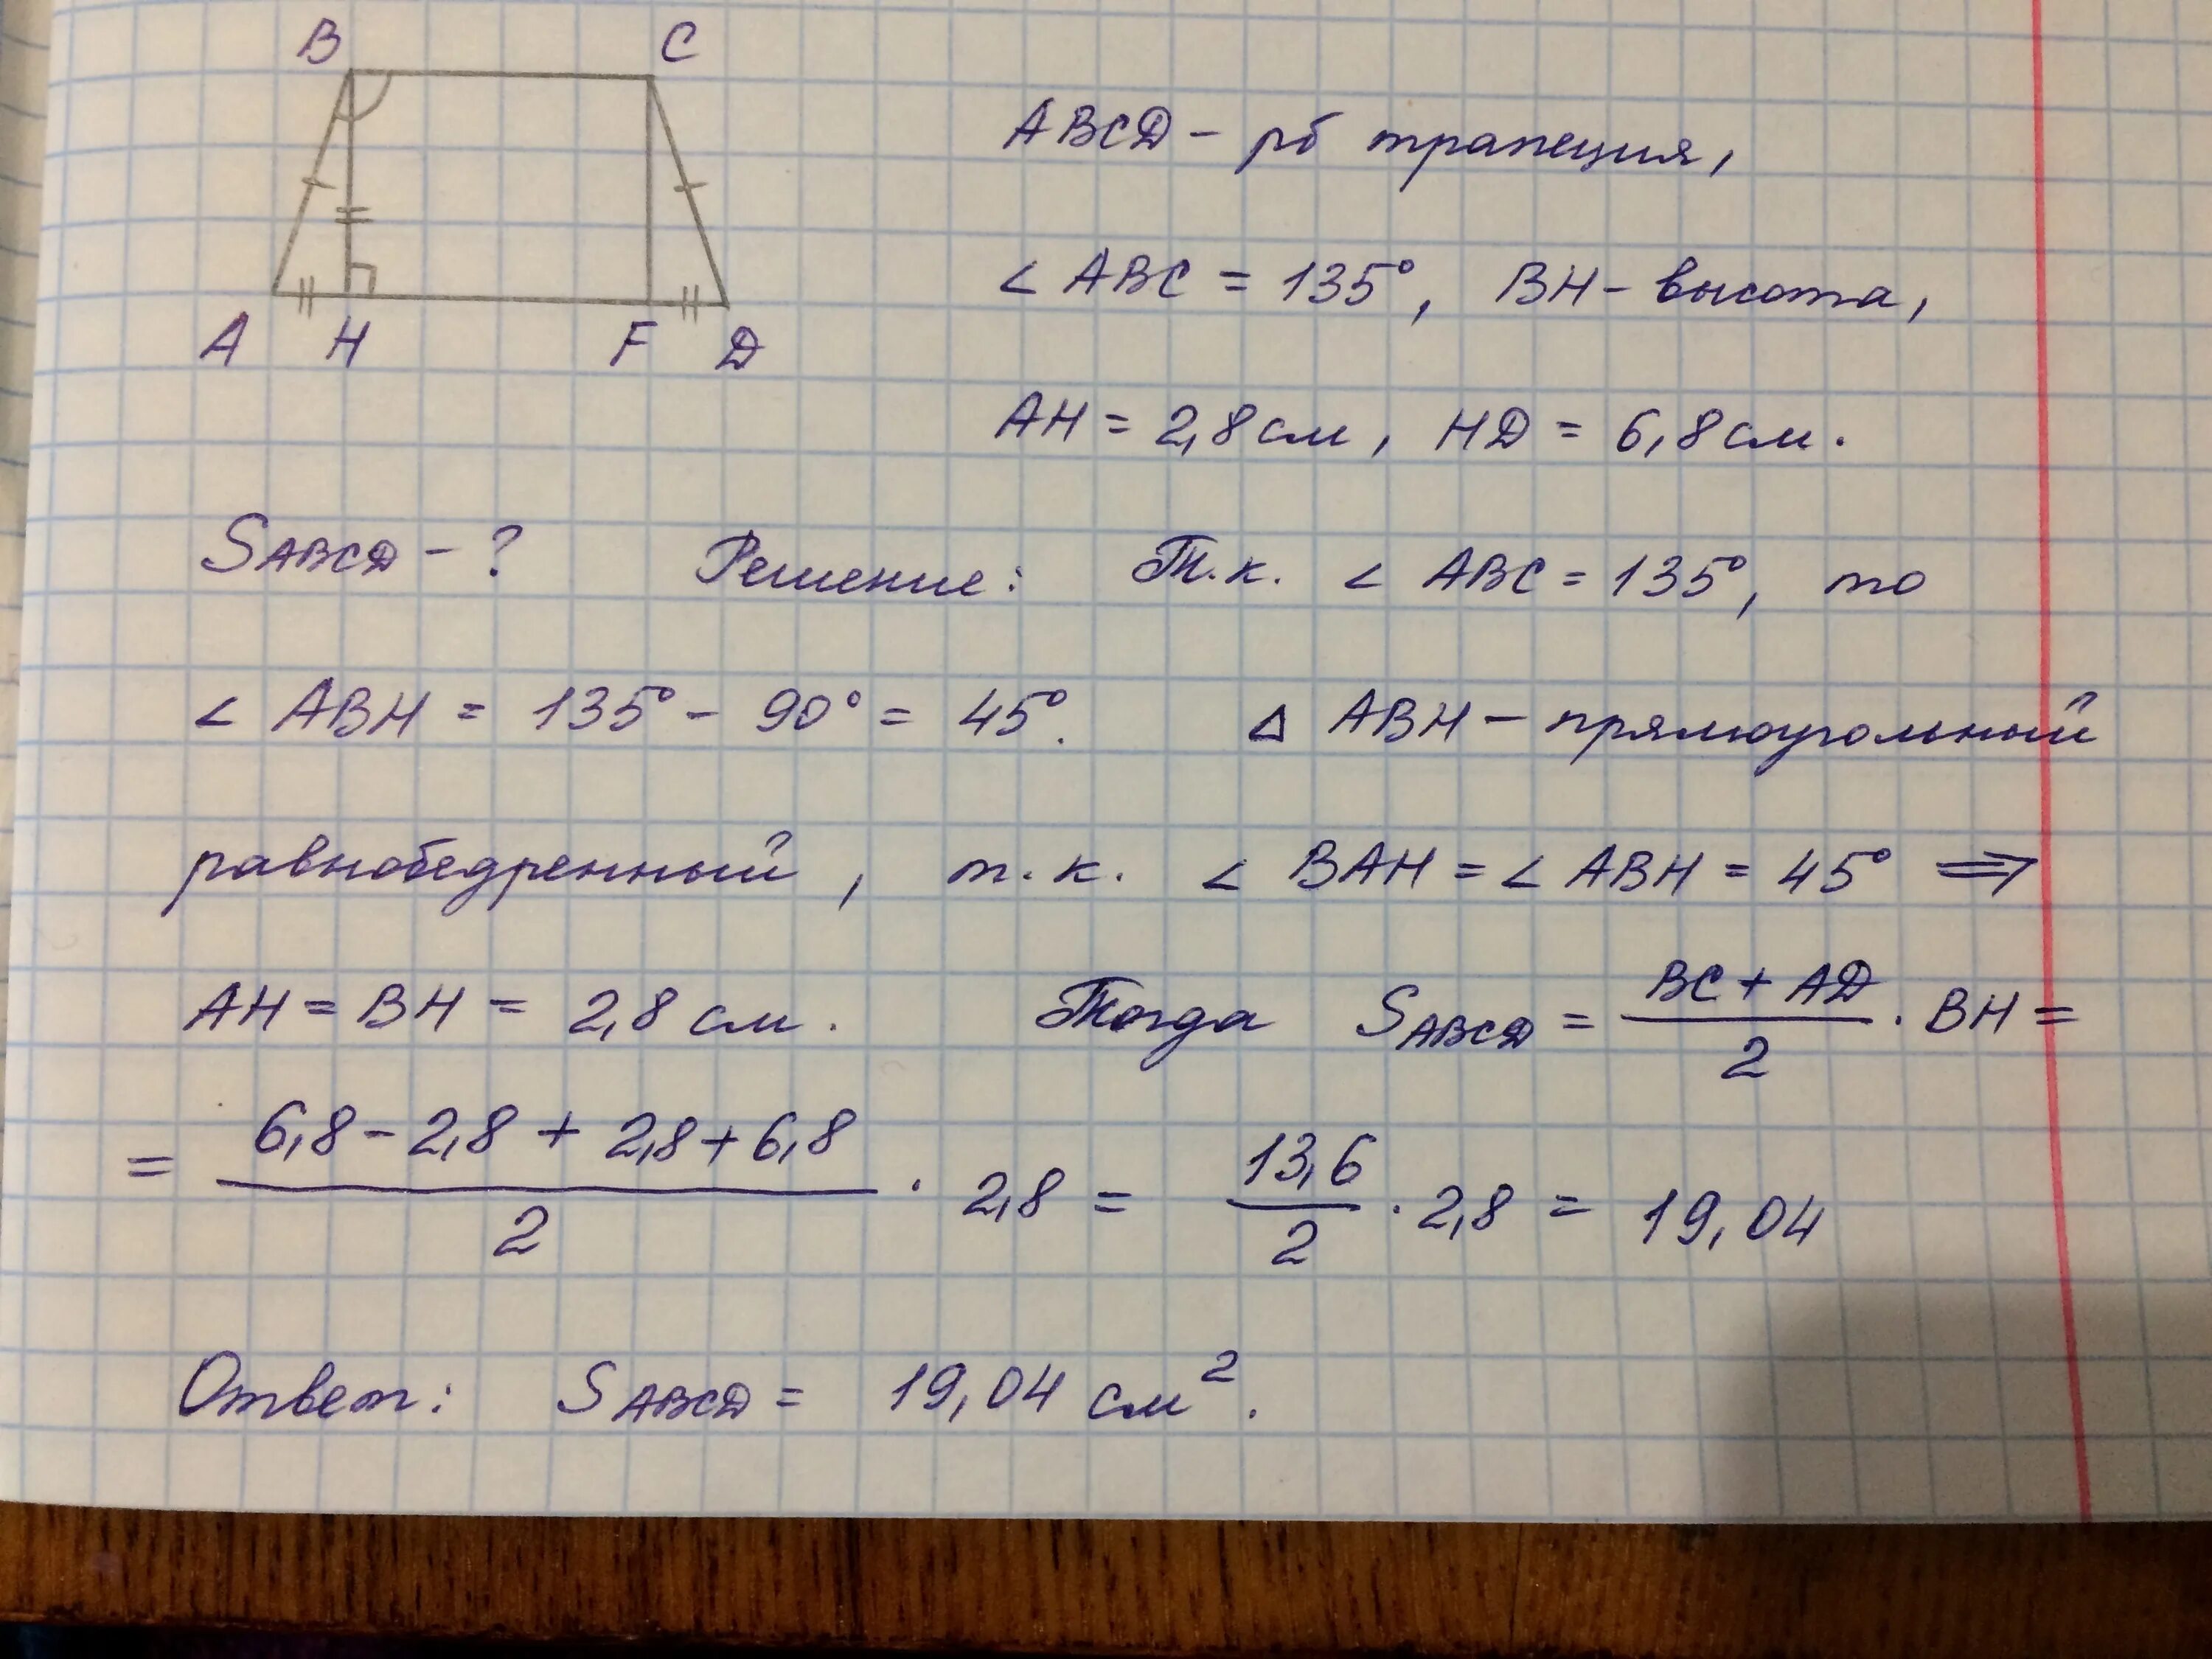 B C
A H F D
ABCD - рб трапеция,
∠ ABC = 135°, BH - высота,
AH = 2,8 см, HD = 6,8 см.
S ABCD - ? Решение: Т.к. ∠ ABC = 135°, то
∠ ABH = 135° - 90° = 45°. Δ ABH - прямоугольный
равнобедренный, т.к. ∠ BAH = ∠ ABH = 45° ⇒
AH = BH = 2,8 см. Тогда S ABCD = (BC + AD)/2 · BH =
= (6,8 - 2,8 + 2,8 + 6,8)/2 · 2,8 = 13,6/2 · 2,8 = 19,04
Ответ: S ABCD = 19,04 см².